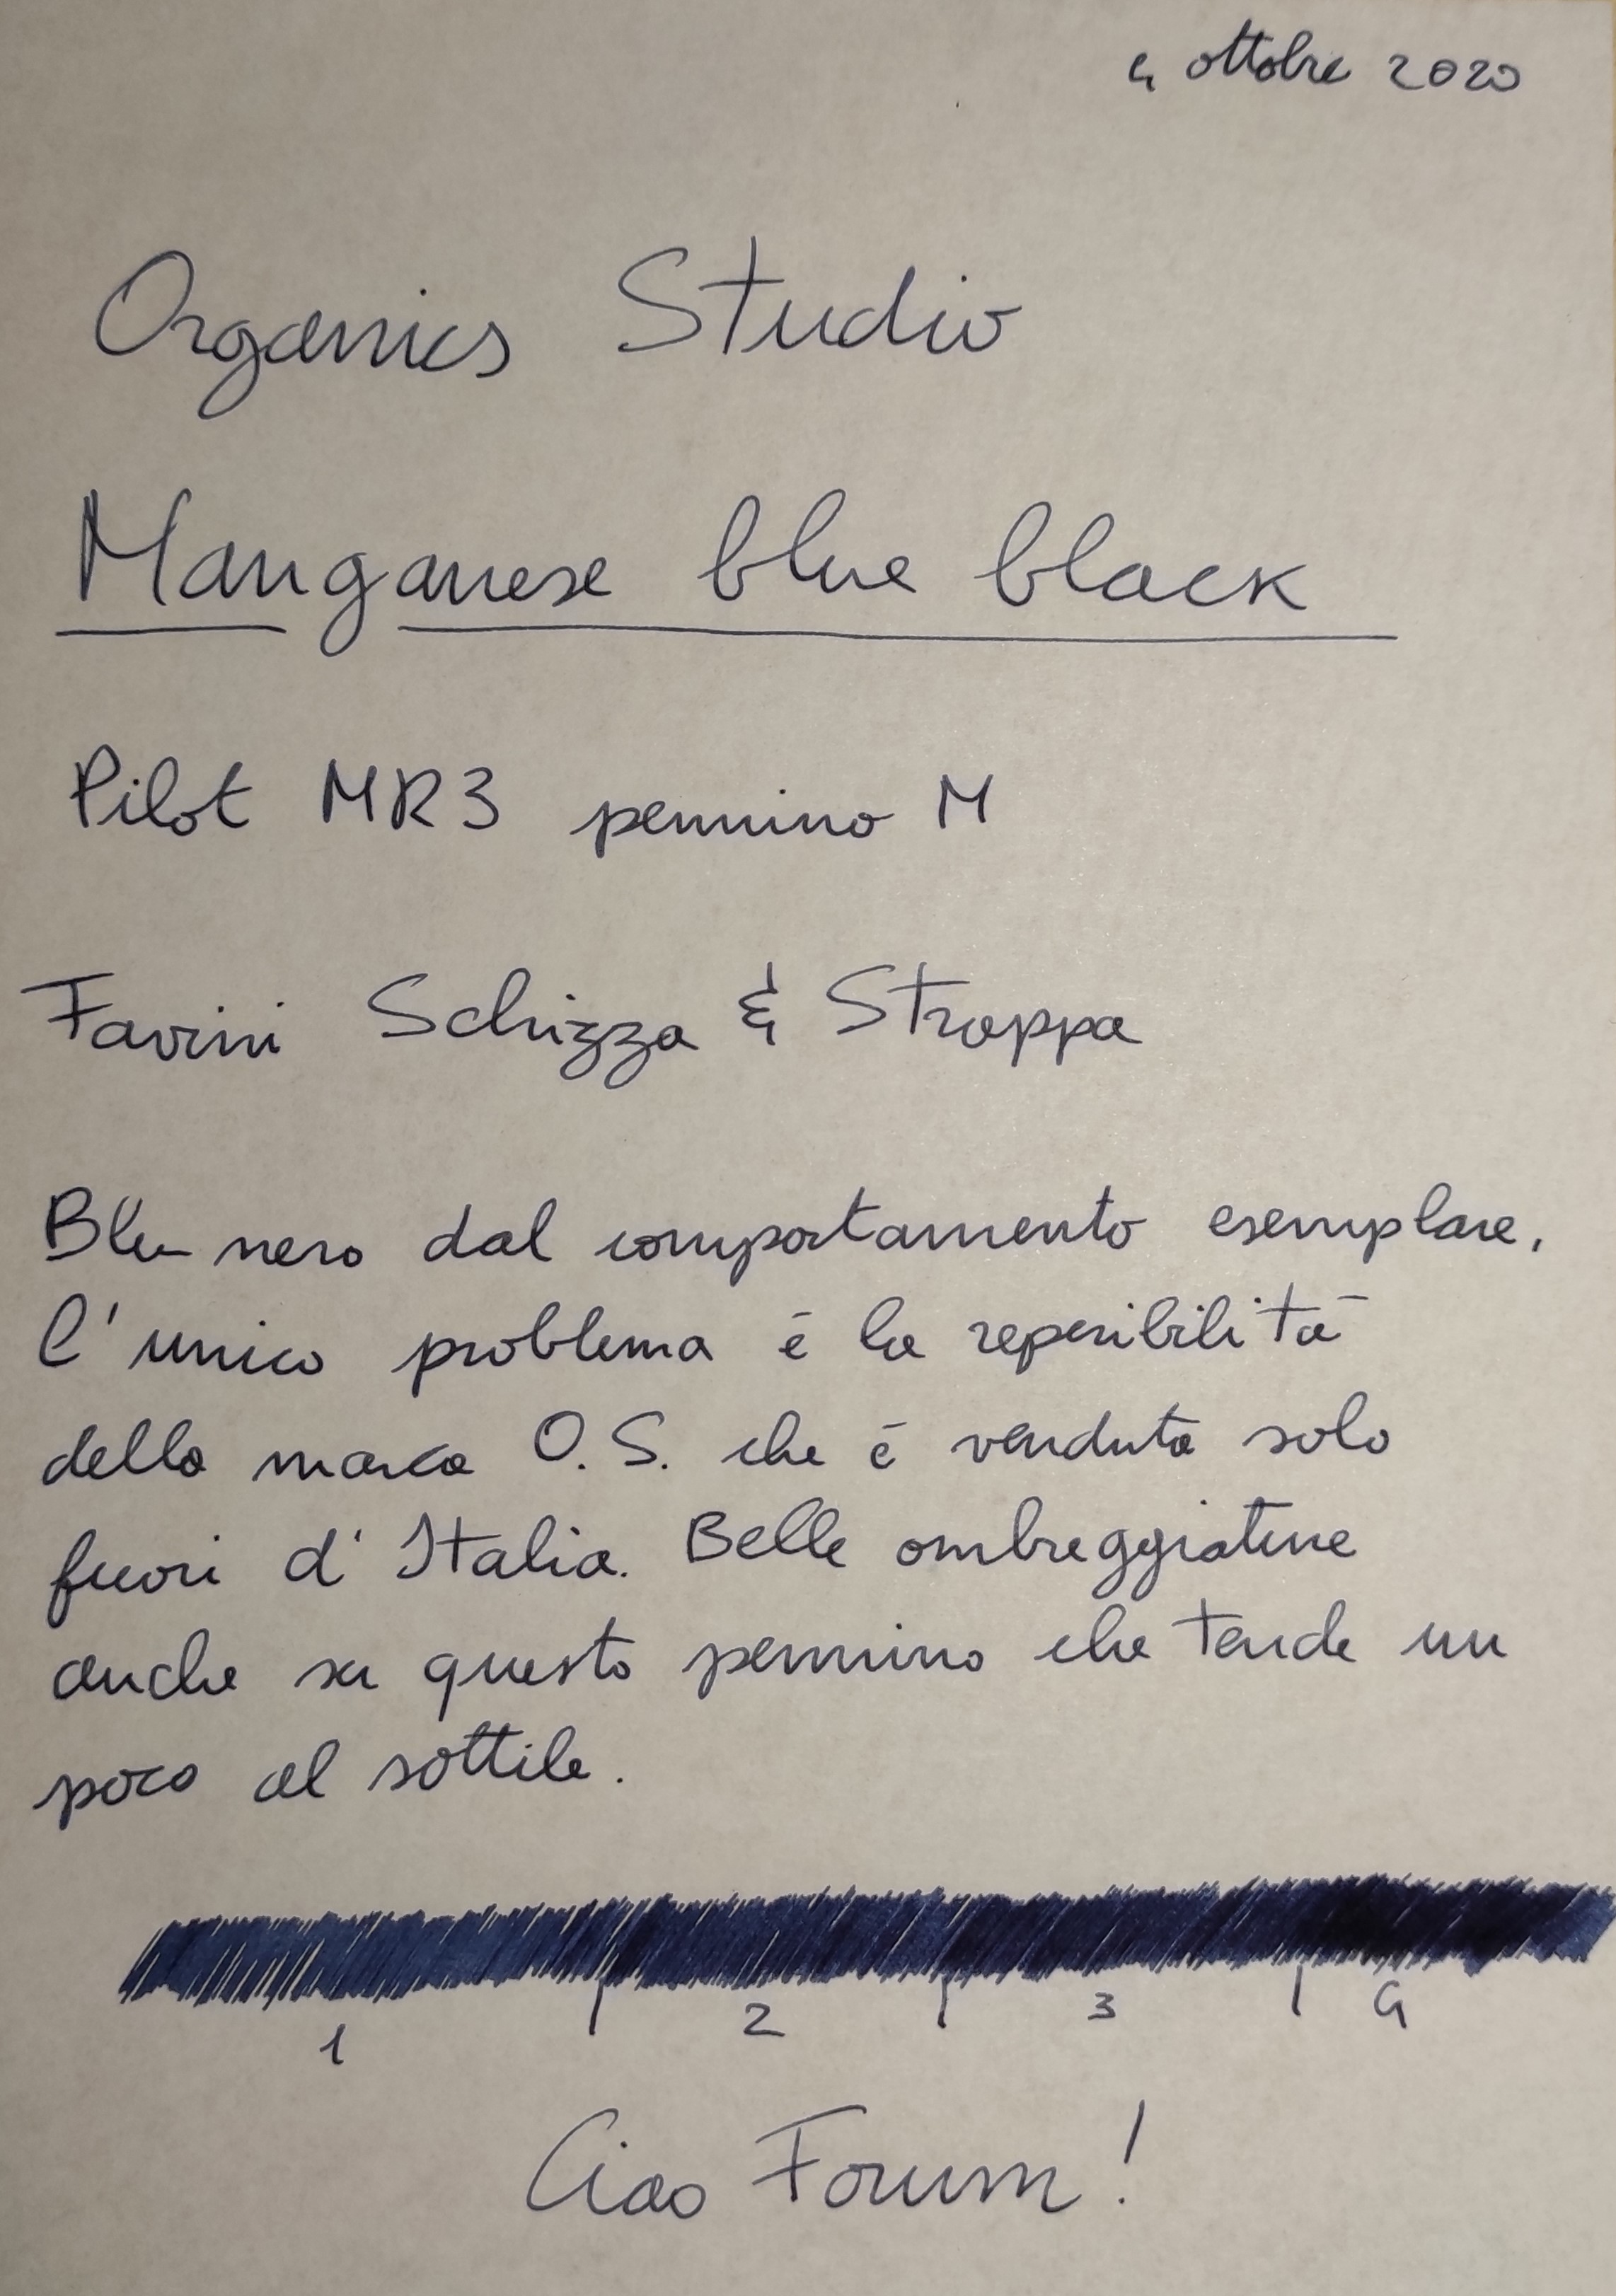 4 ottobre 2020
Organics Studio
Manganese blue black
Pilot MR3 pennino M
Favini Schizza & Strappa
Blu-nero dal comportamento esemplare,
l'unico problema è la reperibilità
della marca O.S. che è venduta solo
fuori d'Italia. Belle ombreggiature
anche su questo pennino che tende un
poco al sottile.
1 2 3 4
Ciao Forum!